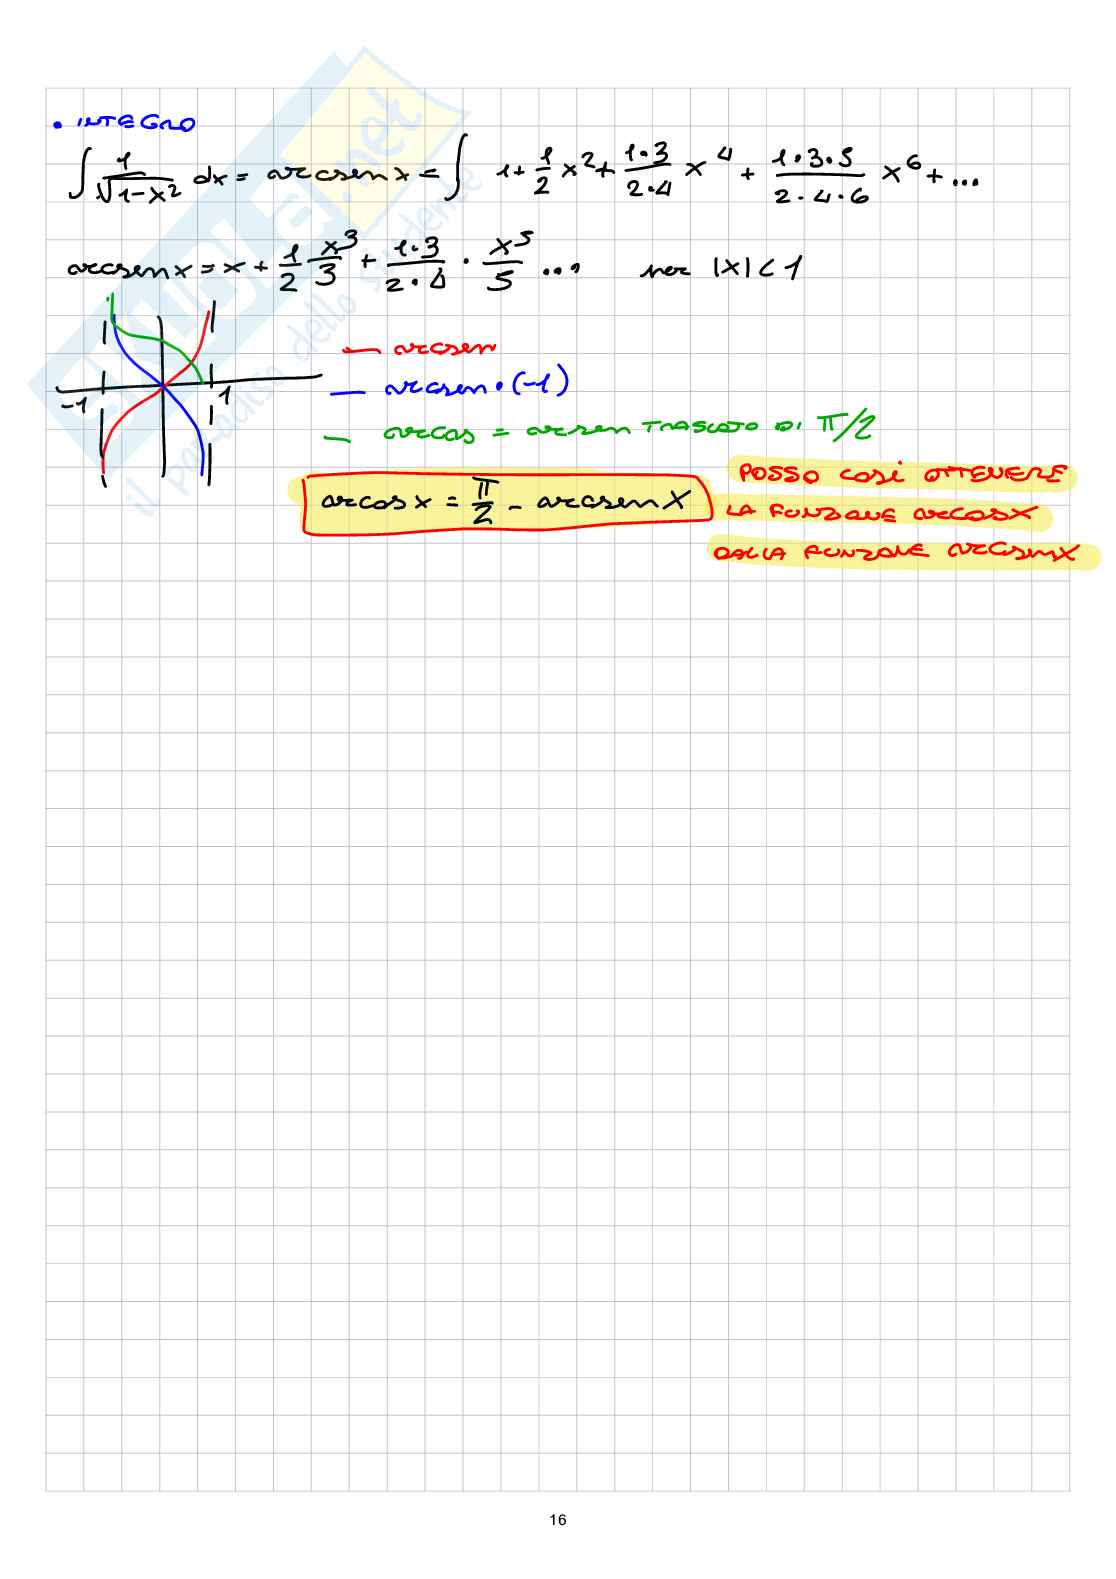 • INTEGRO
∫ 1/√(1-x²) dx = arcsen x = ∫ 1 + 1/2 x² + (1·3)/(2·4) x⁴ + (1·3·5)/(2·4·6) x⁶ + ...
arcsen x = x + 1/2 x³/3 + (1·3)/(2·4) · x⁵/5 ... per |x| < 1
-1 1
— arcsen
— arcsen • (-1)
— arcos = arsen TRASLATO DI π/2
arcos x = π/2 - arcsen x
POSSO COSÌ OTTENERE
LA FUNZIONE arcos x
DALLA FUNZIONE arcsen x
SKUOLA.net
il paradiso dello studente
16